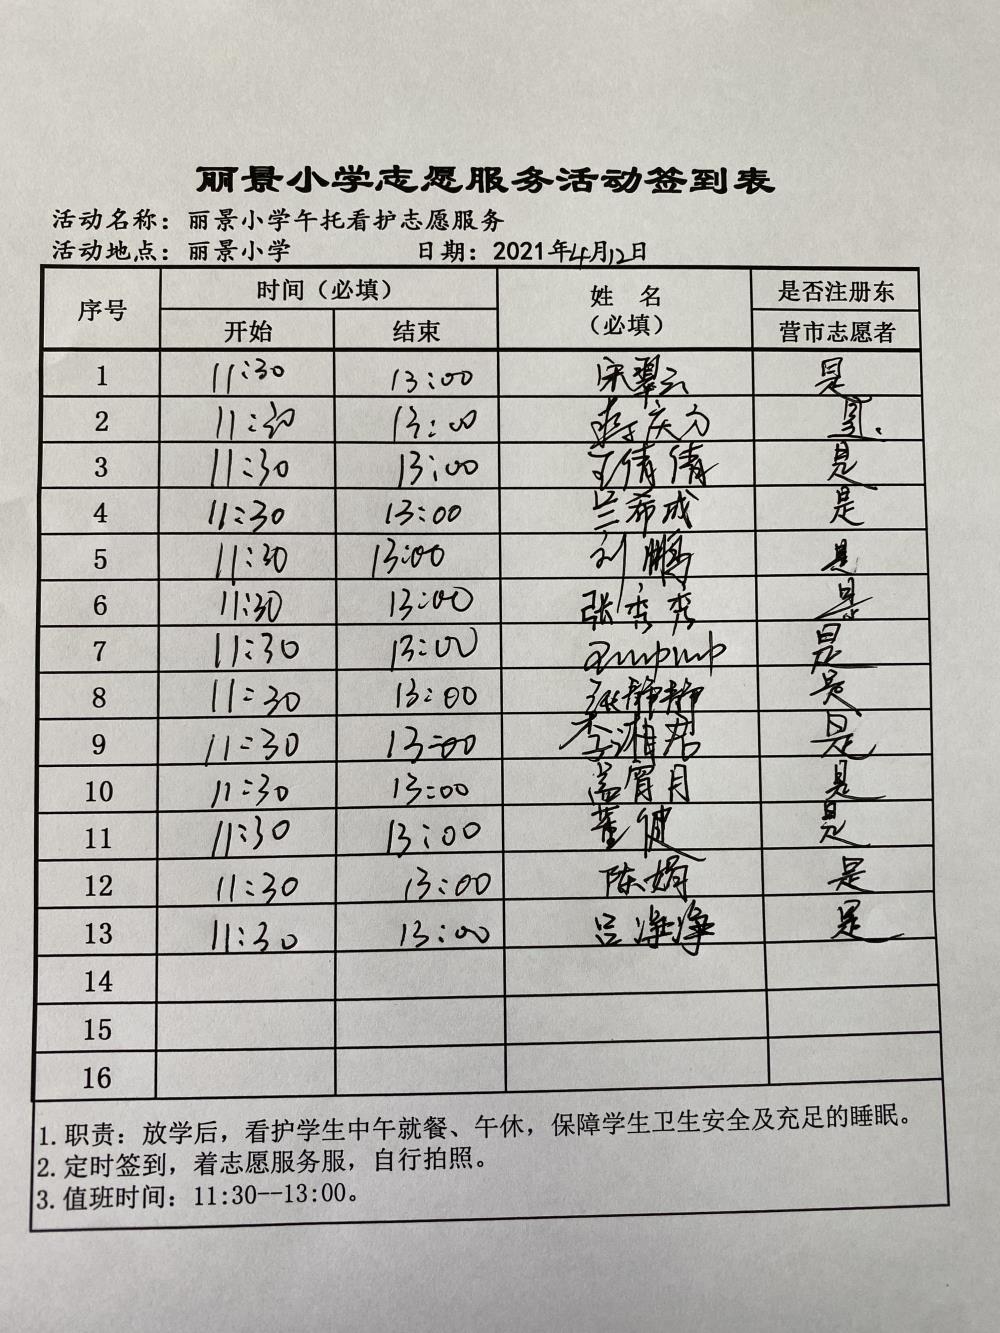 丽景小学志愿服务活动签到表
活动名称：丽景小学午托看护志愿服务
活动地点：丽景小学 日期：2021年4月12日
序号 时间（必填） 姓 名（必填） 是否注册东营市志愿者
开始 结束
1 11:30 13:00 宋翠云 是
2 11:30 13:00 是
3 11:30 13:00 倩倩 是
4 11:30 13:00 兰希成 是
5 11:30 13:00 刘鹏 是
6 11:30 13:00 张秀秀 是
7 11:30 13:00 是
8 11:30 13:00 张静静 是
9 11:30 13:00 李湘君 是
10 11:30 13:00 孟宵月 是
11 11:30 13:00 董健 是
12 11:30 13:00 陈娟 是
13 11:30 13:00 吕净净 是
14
15
16
1. 职责：放学后，看护学生中午就餐、午休，保障学生卫生安全及充足的睡眠。
2. 定时签到，着志愿服务服，自行拍照。
3. 值班时间：11:30--13:00。